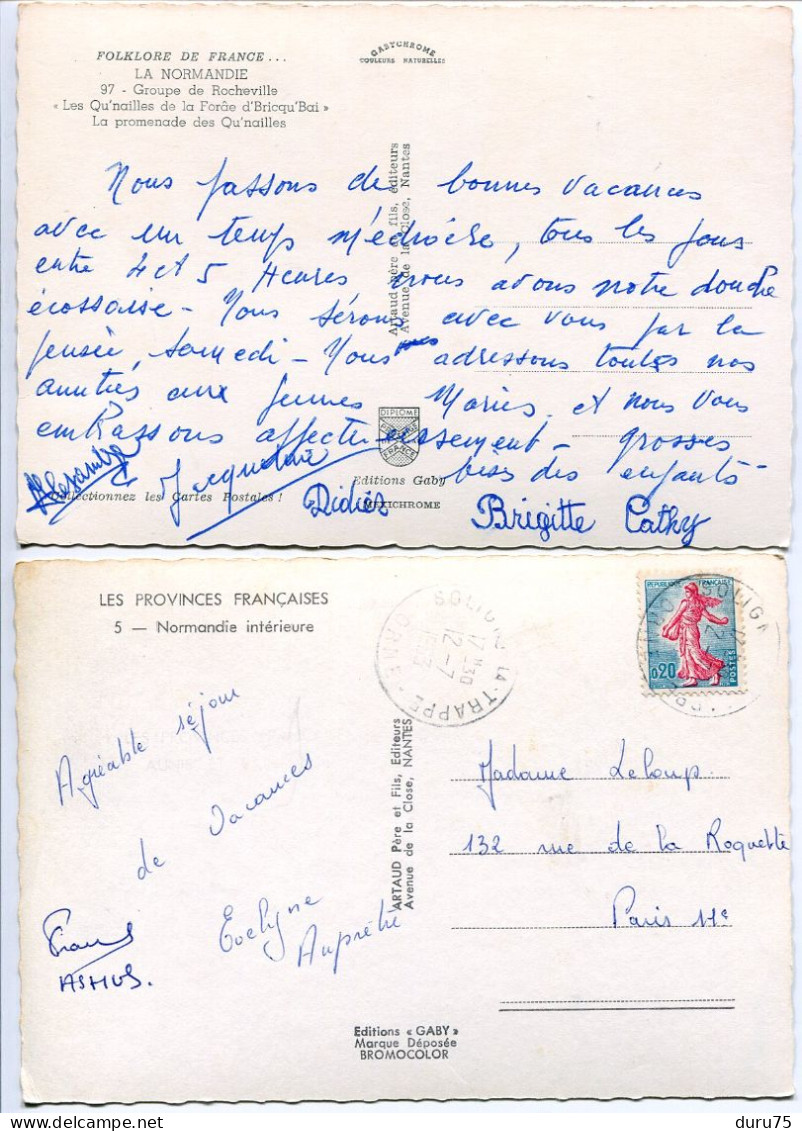 FOLKLORE DE FRANCE...
LA NORMANDIE
97 - Groupe de Rocheville
« Les Qu'nailles de la Forâe d'Bricqu'Bai »
La promenade des Qu'nailles
GABYCHROME
COULEURS NATURELLES
Nous passons de bonnes vacances
avec un temps médiocre, tous les jours
entre 4 et 5 Heures nous avons notre douche
écossaise - Nous serons avec vous par la
pensée, samedi - Nous adressons toutes nos
amitiés aux jeunes Mariés. et nous vous
embrassons affectueusement - grosses
bises des enfants -
Jacqueline
Didier
Brigitte Cathy
Artaud père et fils, éditeurs
Avenue de la Close, Nantes
DIPLOME
FRANCE
Editions Gaby
MEXICHROME
Collectionnez les Cartes Postales !
LES PROVINCES FRANÇAISES
5 — Normandie intérieure
SOLIGNY LA-TRAPPE
ORNE
17 H 30
12-7
REPUBLIQUE FRANÇAISE
0,20
POSTES
Agréable séjour
de Vacances
Evelyne
Aupretre
ASMUS.
ARTAUD Père et Fils, Editeurs
Avenue de la Close, NANTES
Madame Leloup
132 rue de la Roquette
Paris 11e
Editions « GABY »
Marque Déposée
BROMOCOLOR
duru75